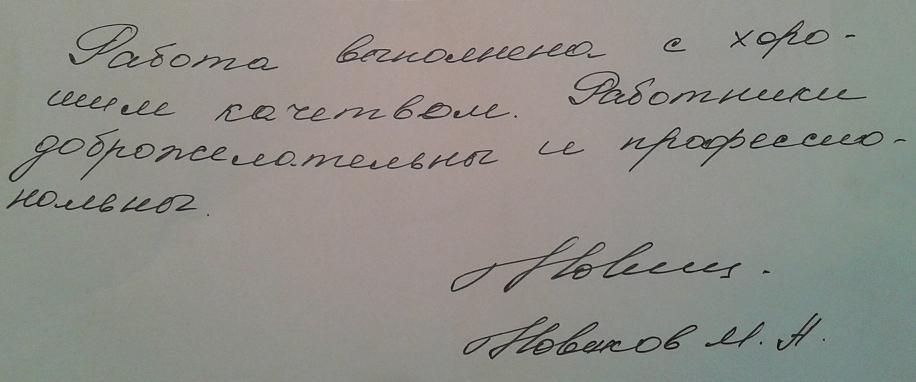 Работа выполнена с хоро-
шим качетвом. Работники
доброжелательны и профессио-
нальны.
Новиков М. Н.